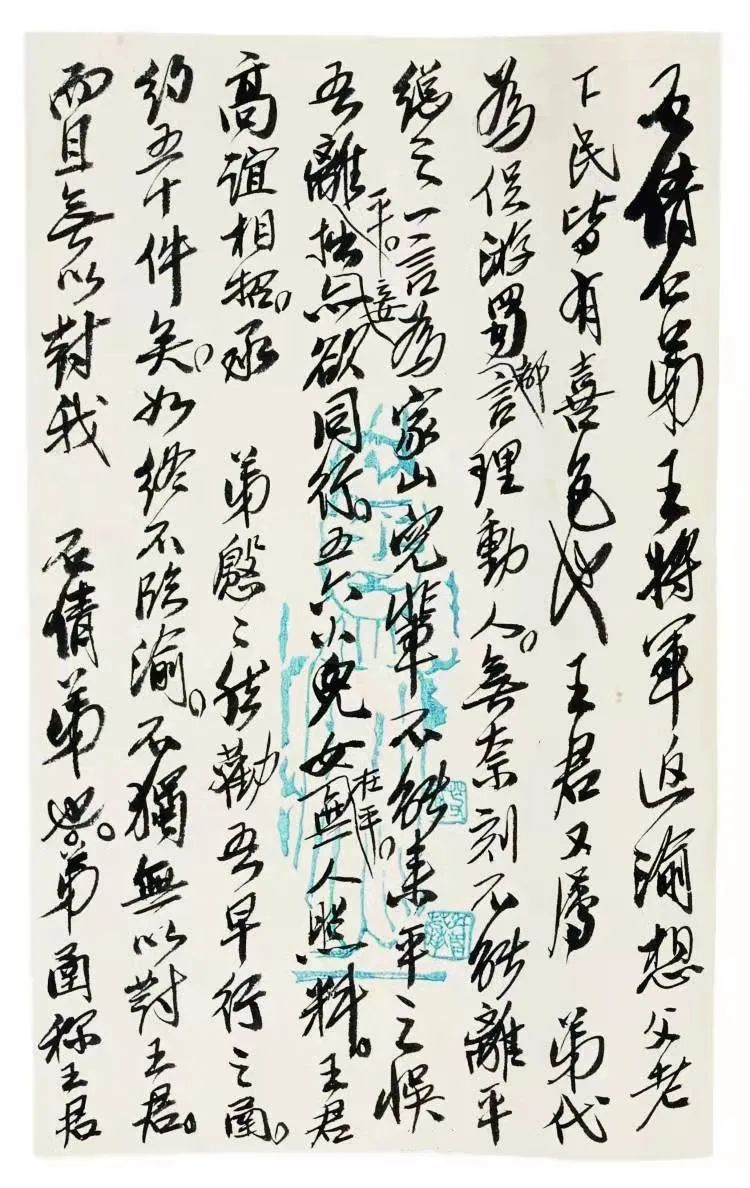 石倩仁弟王將軍返渝想父老
下民皆有喜色也 王君又屬 弟代
為促游蜀都言理動人。無奈刻不能離平
總之一言為家山兒輩不能来平之悮
吾離平。拙妾亦欲同行。五六小兒女在平。無一人照料。王君
高誼相招。承 弟殷〻能勸吾早行之函。
約五十件矣。如終不臨渝。不獨無以對王君。
而且無以對我 石倩弟也。弟函称王君